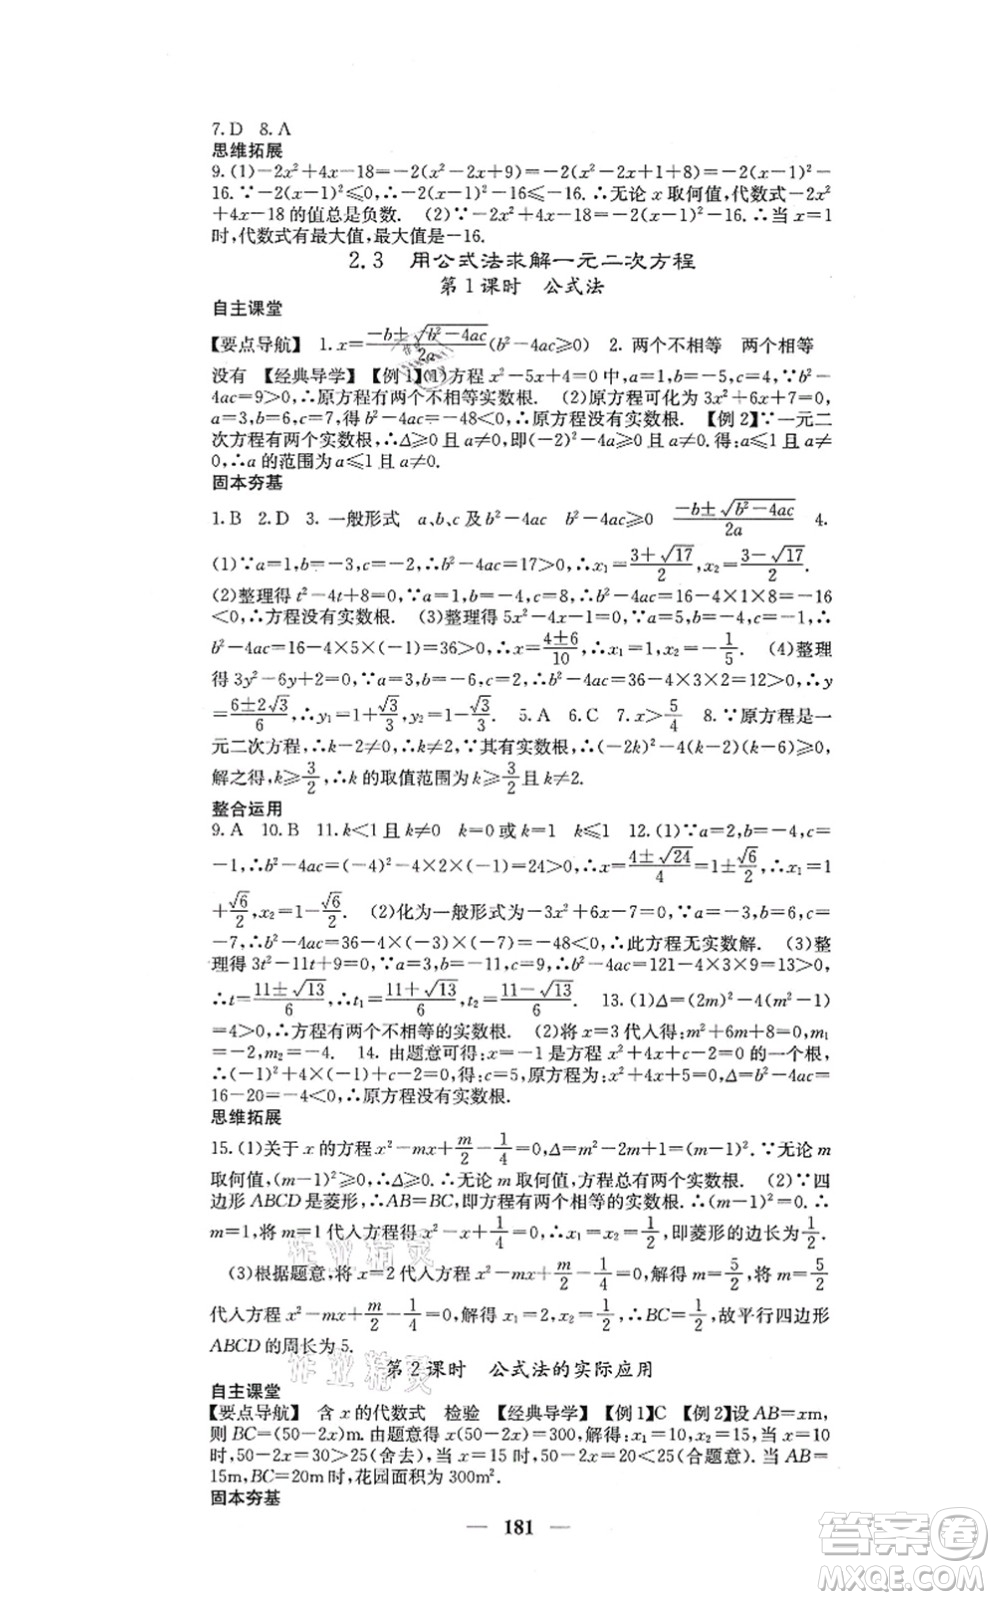 7.D 8.A
思维拓展
9.(1)−2x²+4x−18=−2(x²−2x+9)=−2(x²−2x+1+8)=−2(x−1)²−
16.∵−2(x−1)²≤0,∴−2(x−1)²−16≤−16.∴无论 x 取何值,代数式−2x²
+4x−18 的值总是负数. (2)∵−2x²+4x−18=−2(x−1)²−16.∴当 x=1
时,代数式有最大值,最大值是−16.
2.3 用公式法求解一元二次方程
第 1 课时 公式法
自主课堂
【要点导航】 1.x=(−b±√(b²−4ac))/2a(b²−4ac≥0) 2. 两个不相等 两个相等
没有 【经典导学】【例 1】(1)方程 x²−5x+4=0 中,a=1,b=−5,c=4,∵b²−
4ac=9>0,∴原方程有两个不相等实数根. (2)原方程可化为 3x²+6x+7=0,
a=3,b=6,c=7,得 b²−4ac=−48<0,∴原方程没有实数根. 【例 2】∵一元二
次方程有两个实数根,∴Δ≥0 且 a≠0,即(−2)²−4a≥0 且 a≠0.得:a≤1 且 a≠
0,∴a 的范围为 a≤1 且 a≠0.
固本夯基
1.B 2.D 3. 一般形式 a、b、c 及 b²−4ac b²−4ac≥0 (−b±√(b²−4ac))/2a 4.
(1)∵a=1,b=−3,c=−2,∴b²−4ac=17>0,∴x₁=(3+√17)/2,x₂=(3−√17)/2.
(2)整理得 t²−4t+8=0,∵a=1,b=−4,c=8,∴b²−4ac=16−4×1×8=−16
<0,∴方程没有实数根. (3)整理得 5x²−4x−1=0,∵a=5,b=−4,c=−1,∴
b²−4ac=16−4×5×(−1)=36>0,∴x=(4±6)/10,∴x₁=1,x₂=−1/5. (4)整理
得 3y²−6y+2=0,∵a=3,b=−6,c=2,∴b²−4ac=36−4×3×2=12>0,∴y
=(6±2√3)/6,∴y₁=1+√3/3,y₂=1−√3/3. 5.A 6.C 7.x>5/4 8.∵原方程是一
元二次方程,∴k−2≠0,∴k≠2,∵其有实数根,∴(−2k)²−4(k−2)(k−6)≥0,
解之得,k≥3/2,∴k 的取值范围为 k≥3/2且 k≠2.
整合运用
9.A 10.B 11.k<1 且 k≠0 k=0 或 k=1 k≤1 12.(1)∵a=2,b=−4,c=
−1,∴b²−4ac=(−4)²−4×2×(−1)=24>0,∴x=(4±√24)/4=1±√6/2,∴x₁=1
+√6/2,x₂=1−√6/2. (2)化为一般形式为−3x²+6x−7=0,∵a=−3,b=6,c=
−7,∴b²−4ac=36−4×(−3)×(−7)=−48<0,∴此方程无实数解. (3)整
理得 3t²−11t+9=0,∵a=3,b=−11,c=9,∴b²−4ac=121−4×3×9=13>0,
∴t=(11±√13)/6,∴t₁=(11+√13)/6,t₂=(11−√13)/6. 13.(1)Δ=(2m)²−4(m²−1)
=4>0,∴方程有两个不相等的实数根. (2)将 x=3 代入得:m²+6m+8=0,m₁
=−2,m₂=−4. 14. 由题意可得:x=−1 是方程 x²+4x+c=0 的一个根,
∴(−1)²+4×(−1)+c=2,得:c=5,原方程为:x²+4x+5=0,Δ=b²−4ac=
16−20=−4<0,∴原方程没有实数根.
思维拓展
15.(1)关于 x 的方程 x²−mx+m/2−1/4=0,Δ=m²−2m+1=(m−1)².∵无论 m
取何值,(m−1)²≥0,∴Δ≥0.∴无论 m 取何值,方程总有两个实数根. (2)∵四
边形 ABCD 是菱形,∴AB=BC,即方程有两个相等的实数根.∴(m−1)²=0.∴
m=1,将 m=1 代入方程得 x²−x+1/4=0,∴x₁=x₂=1/2,即菱形的边长为1/2.
(3)根据题意,将 x=2 代入方程 x²−mx+m/2−1/4=0,解得 m=5/2,将 m=5/2
代入方程 x²−mx+m/2−1/4=0,解得 x₁=2,x₂=1/2,∴BC=1/2,故平行四边形
ABCD 的周长为 5.
第 2 课时 公式法的实际应用
自主课堂
【要点导航】 含 x 的代数式 检验 【经典导学】【例 1】C 【例 2】设 AB=xm,
则 BC=(50−2x)m.由题意得 x(50−2x)=300,解得:x₁=10,x₂=15,当 x=10
时,50−2x=30>25(舍去),当 x=15 时,50−2x=20<25(合题意).当 AB=
15m,BC=20m 时,花园面积为 300m².
固本夯基
— 181 —
作业精灵
作业精灵
答案圈
MXQE.COM